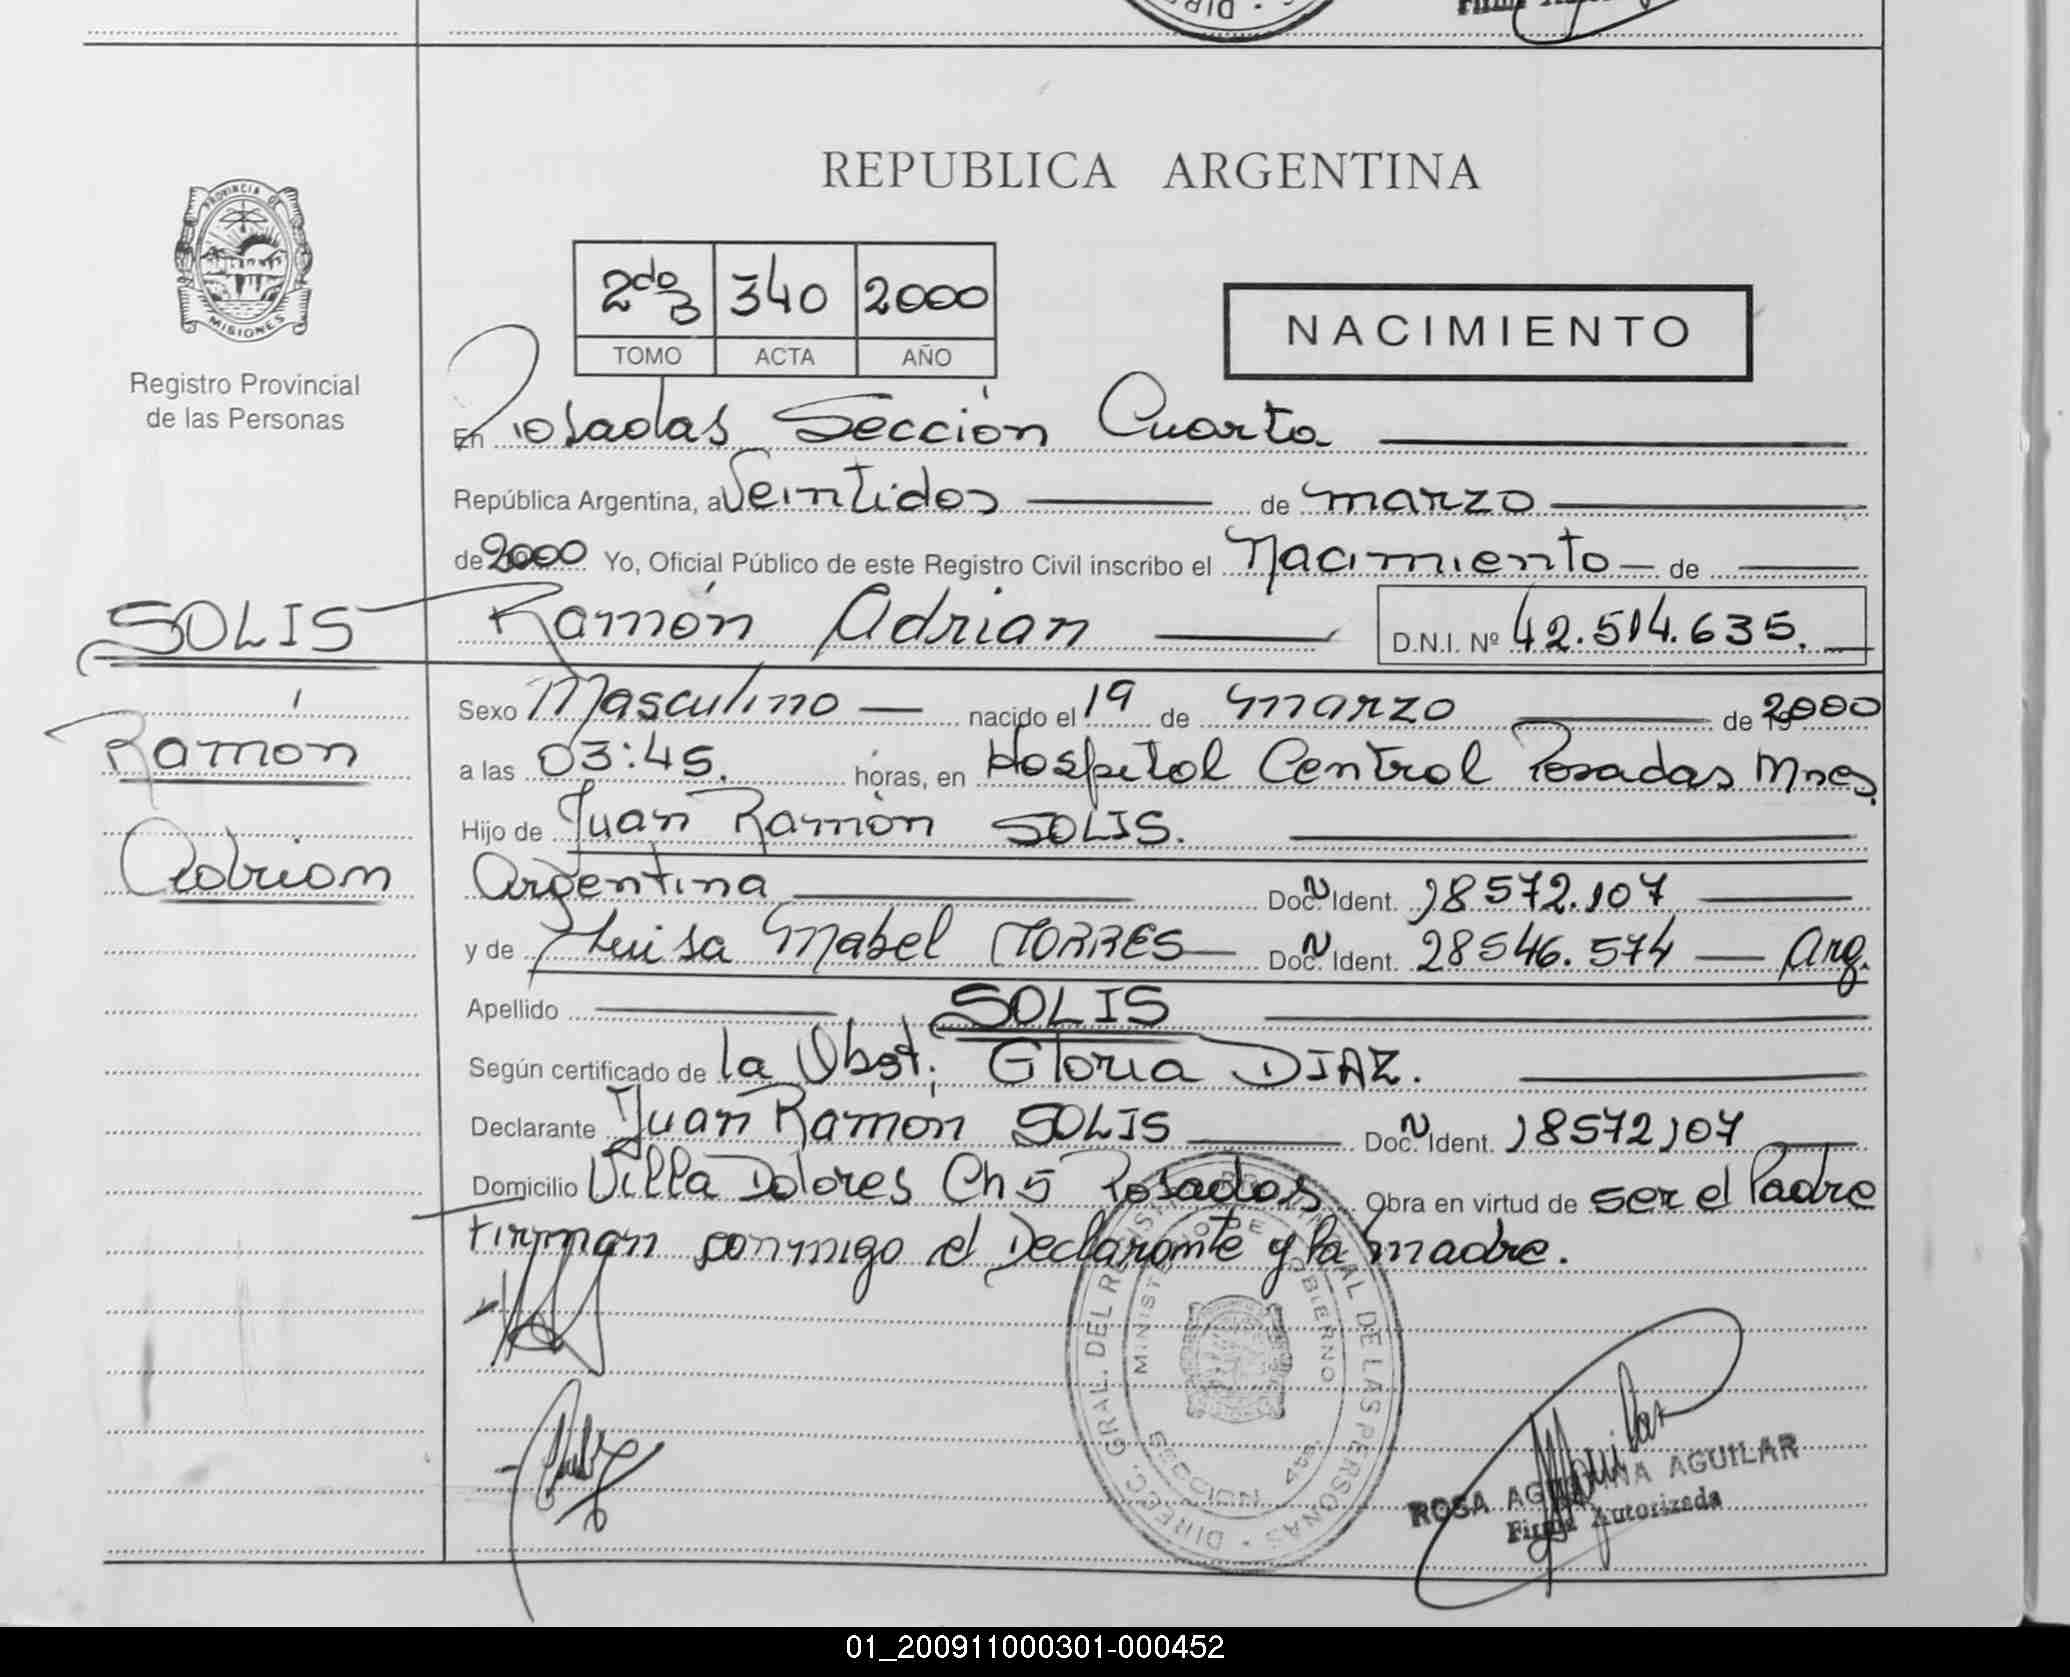 REPUBLICA ARGENTINA
PROVINCIA DE
MISIONES
Registro Provincial
de las Personas
2do B 340 2000
TOMO ACTA AÑO
NACIMIENTO
En Posadas Sección Cuarta
República Argentina, a Veintidos de marzo
de 2000 Yo, Oficial Público de este Registro Civil inscribo el Nacimiento de
SOLIS
Ramón Adrian D.N.I. Nº 42.514.635.
Ramón
Adrian
Sexo Masculino nacido el 19 de marzo de 2000
a las 03:45. horas, en Hospital Central Posadas Mnes.
Hijo de Juan Ramón SOLIS.
Argentina Doc. N Ident. 18572.107
y de Luisa Mabel TORRES Doc. N Ident. 28546.574 Arg.
Apellido SOLIS
Según certificado de la Obst. Gloria DIAZ.
Declarante Juan Ramon SOLIS Doc. N Ident. 18572107
Domicilio Villa Dolores Ch 5 Posadas Obra en virtud de ser el Padre
Firman conmigo el Declarante y la madre.
DIREC. GRAL. DEL REGISTRO PROVINCIAL DE LAS PERSONAS
MINISTERIO DE GOBIERNO
SECCION 4ta.
ROSA AGUSTINA AGUILAR
Firma Autorizada
01_200911000301-000452